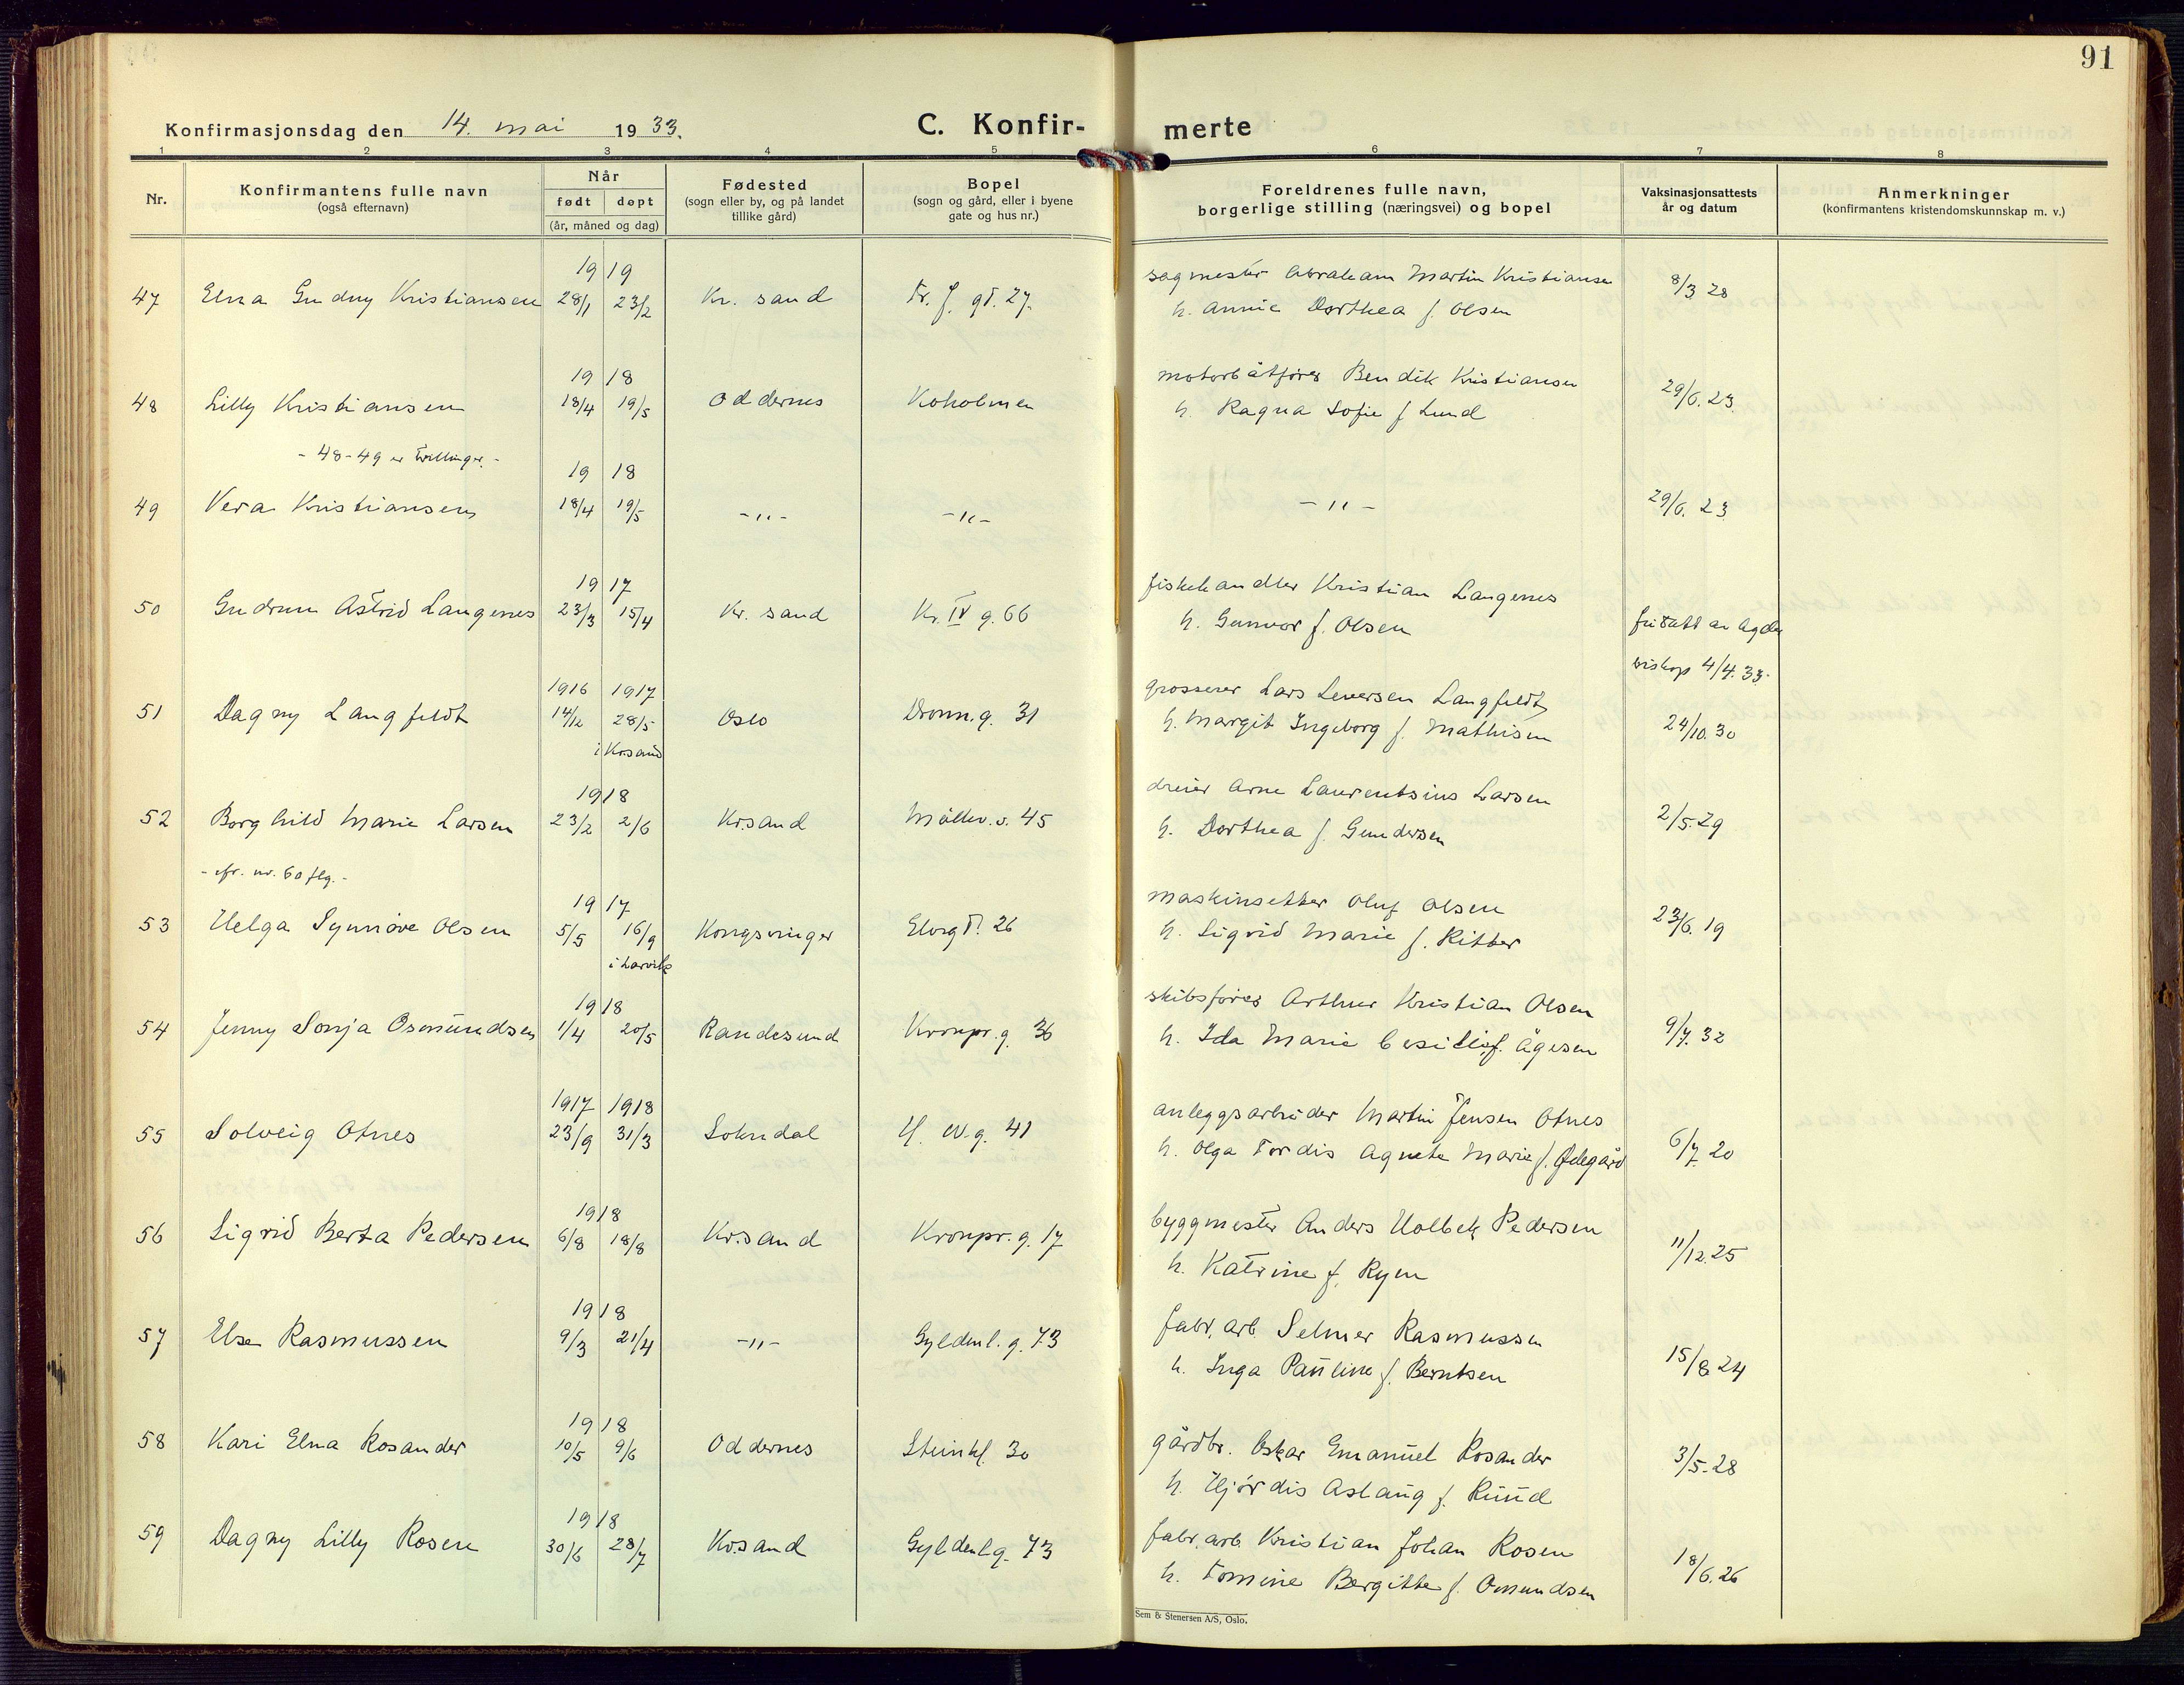 91
Konfirmasjonsdag den 14. mai 1933.
C. Konfir-
merte
1 2 3 4 5 6 7 8
Nr.
Konfirmantens fulle navn
(også efternavn)
Når
født døpt
(år, måned og dag)
Fødested
(sogn eller by, og på landet
tillike gård)
Bopel
(sogn og gård, eller i byene
gate og hus nr.)
Foreldrenes fulle navn,
borgerlige stilling (næringsvei) og bopel
Vaksinasjonsattests
år og datum
Anmerkninger
(konfirmantens kristendomskunnskap m. v.)
1919
47 Elna Gudny Kristiansen 28/1 23/2 Kr. sand Tr. f. gt. 27.
sagmester Abraham Martin Kristiansen
h. Annie Dorthea f. Olsen
8/3 28
1918
48 Lilly Kristiansen 18/4 19/5 Oddernes Koholmen
motorbåtfører Bendik Kristiansen
h. Ragna Sofie f Lund
29/6. 23
- 48-49 er tvillinger. -
1918
49 Vera Kristiansen 18/4 19/5 -"- -"-
-"-
29/6. 23
1917
50 Gudrun Astrid Langenes 23/3 15/4 Kr. sand Kr. IV g. 66
fiskehandler Kristian Langenes
h. Gunvor f. Olsen
fritatt av Agder
biskop 4/4. 33.
1916 1917
51 Dagny Langfeldt 14/12 28/5 Oslo Dronn. g. 31
i Krsand
grosserer Lars Leversen Langfeldt
h. Margit Ingeborg f. Mathisen
24/10. 30
1918
52 Borghild Marie Larsen 23/2 2/6 Krsand Møllev. s. 45
dreier Arne Laurentsius Larsen
h. Dorthea f. Gundersen
2/5. 29
- cfr. nr. 60 flg. -
1917
53 Helga Synnøve Olsen 5/5 16/9 Kongsvinger Elvegt. 26
i Larvik
maskinsetter Oluf Olsen
h. Sigrid Marie f. Ritter
23/6. 19
1918
54 Jenny Sonja Osmundsen 1/4 20/5 Randesund Kronpr. g. 36
skibsfører Arthur Kristian Olsen
h. Ida Marie Cesilie f. Ågesen
9/7. 32
1917 1918
55 Solveig Otnes 23/9 31/3 Sokndal H. W. g. 41
anleggsarbeider Martin Jensen Otnes
h. Olga Tordis Agnete Marie f. Ødegård
6/7 20
1918
56 Sigrid Berta Pedersen 6/8 18/8 Krsand Kronpr. g. 17
byggmester Anders Holbek Pedersen
h. Katrine f. Ryen
11/12. 25
1918
57 Else Rasmussen 9/3 21/4 -"- Gyldenl. g. 73
fabr. arb. Selmer Rasmussen
h. Inga Pauline f. Berntsen
15/8 24
1918
58 Kari Elna Rosander 10/5 9/6 Oddernes Steinkl. 30
gårdbr. Oskar Emanuel Rosander
h. Hjørdis Aslaug f. Ruud
3/5. 28
1918
59 Dagny Lilly Rosen 30/6 28/7 Krsand Gyldenl g. 73
fabr. arb. Kristian Johan Rosen
h. Tomine Bergitte f. Omundsen
18/6. 26
Sem & Stenersen A/S, Oslo.